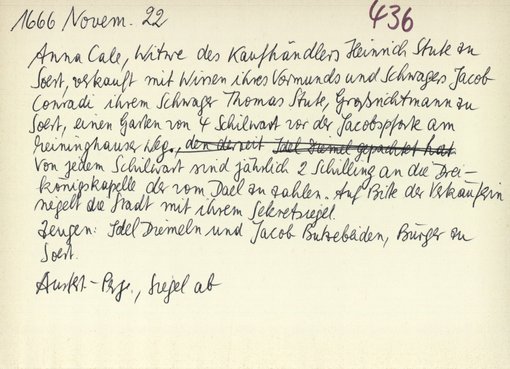 1666 Novem. 22
436
Anna Cale, Witwe des Kaufhändlers Heinrich Stute zu
Soest, verkauft mit Wissen ihres Vormunds und Schwagers Jacob
Conradi ihrem Schwager Thomas Stute, Großrichtmann zu
Soest, einen Garten von 4 Schilwart vor der Jacobspforte am
Meininghauser Weg, den derzeit Idel Diemel gepachtet hat
Von jedem Schilwart sind jährlich 2 Schilling an die Drei-
königskapelle der vom Dael zu zahlen. Auf Bitte der Verkäuferin
siegelt die Stadt mit ihrem Sekretsiegel.
Zeugen: Idel Diemeln und Jacob Butzebäiden, Bürger zu
Soest.
Ausf.-Perg., Siegel ab